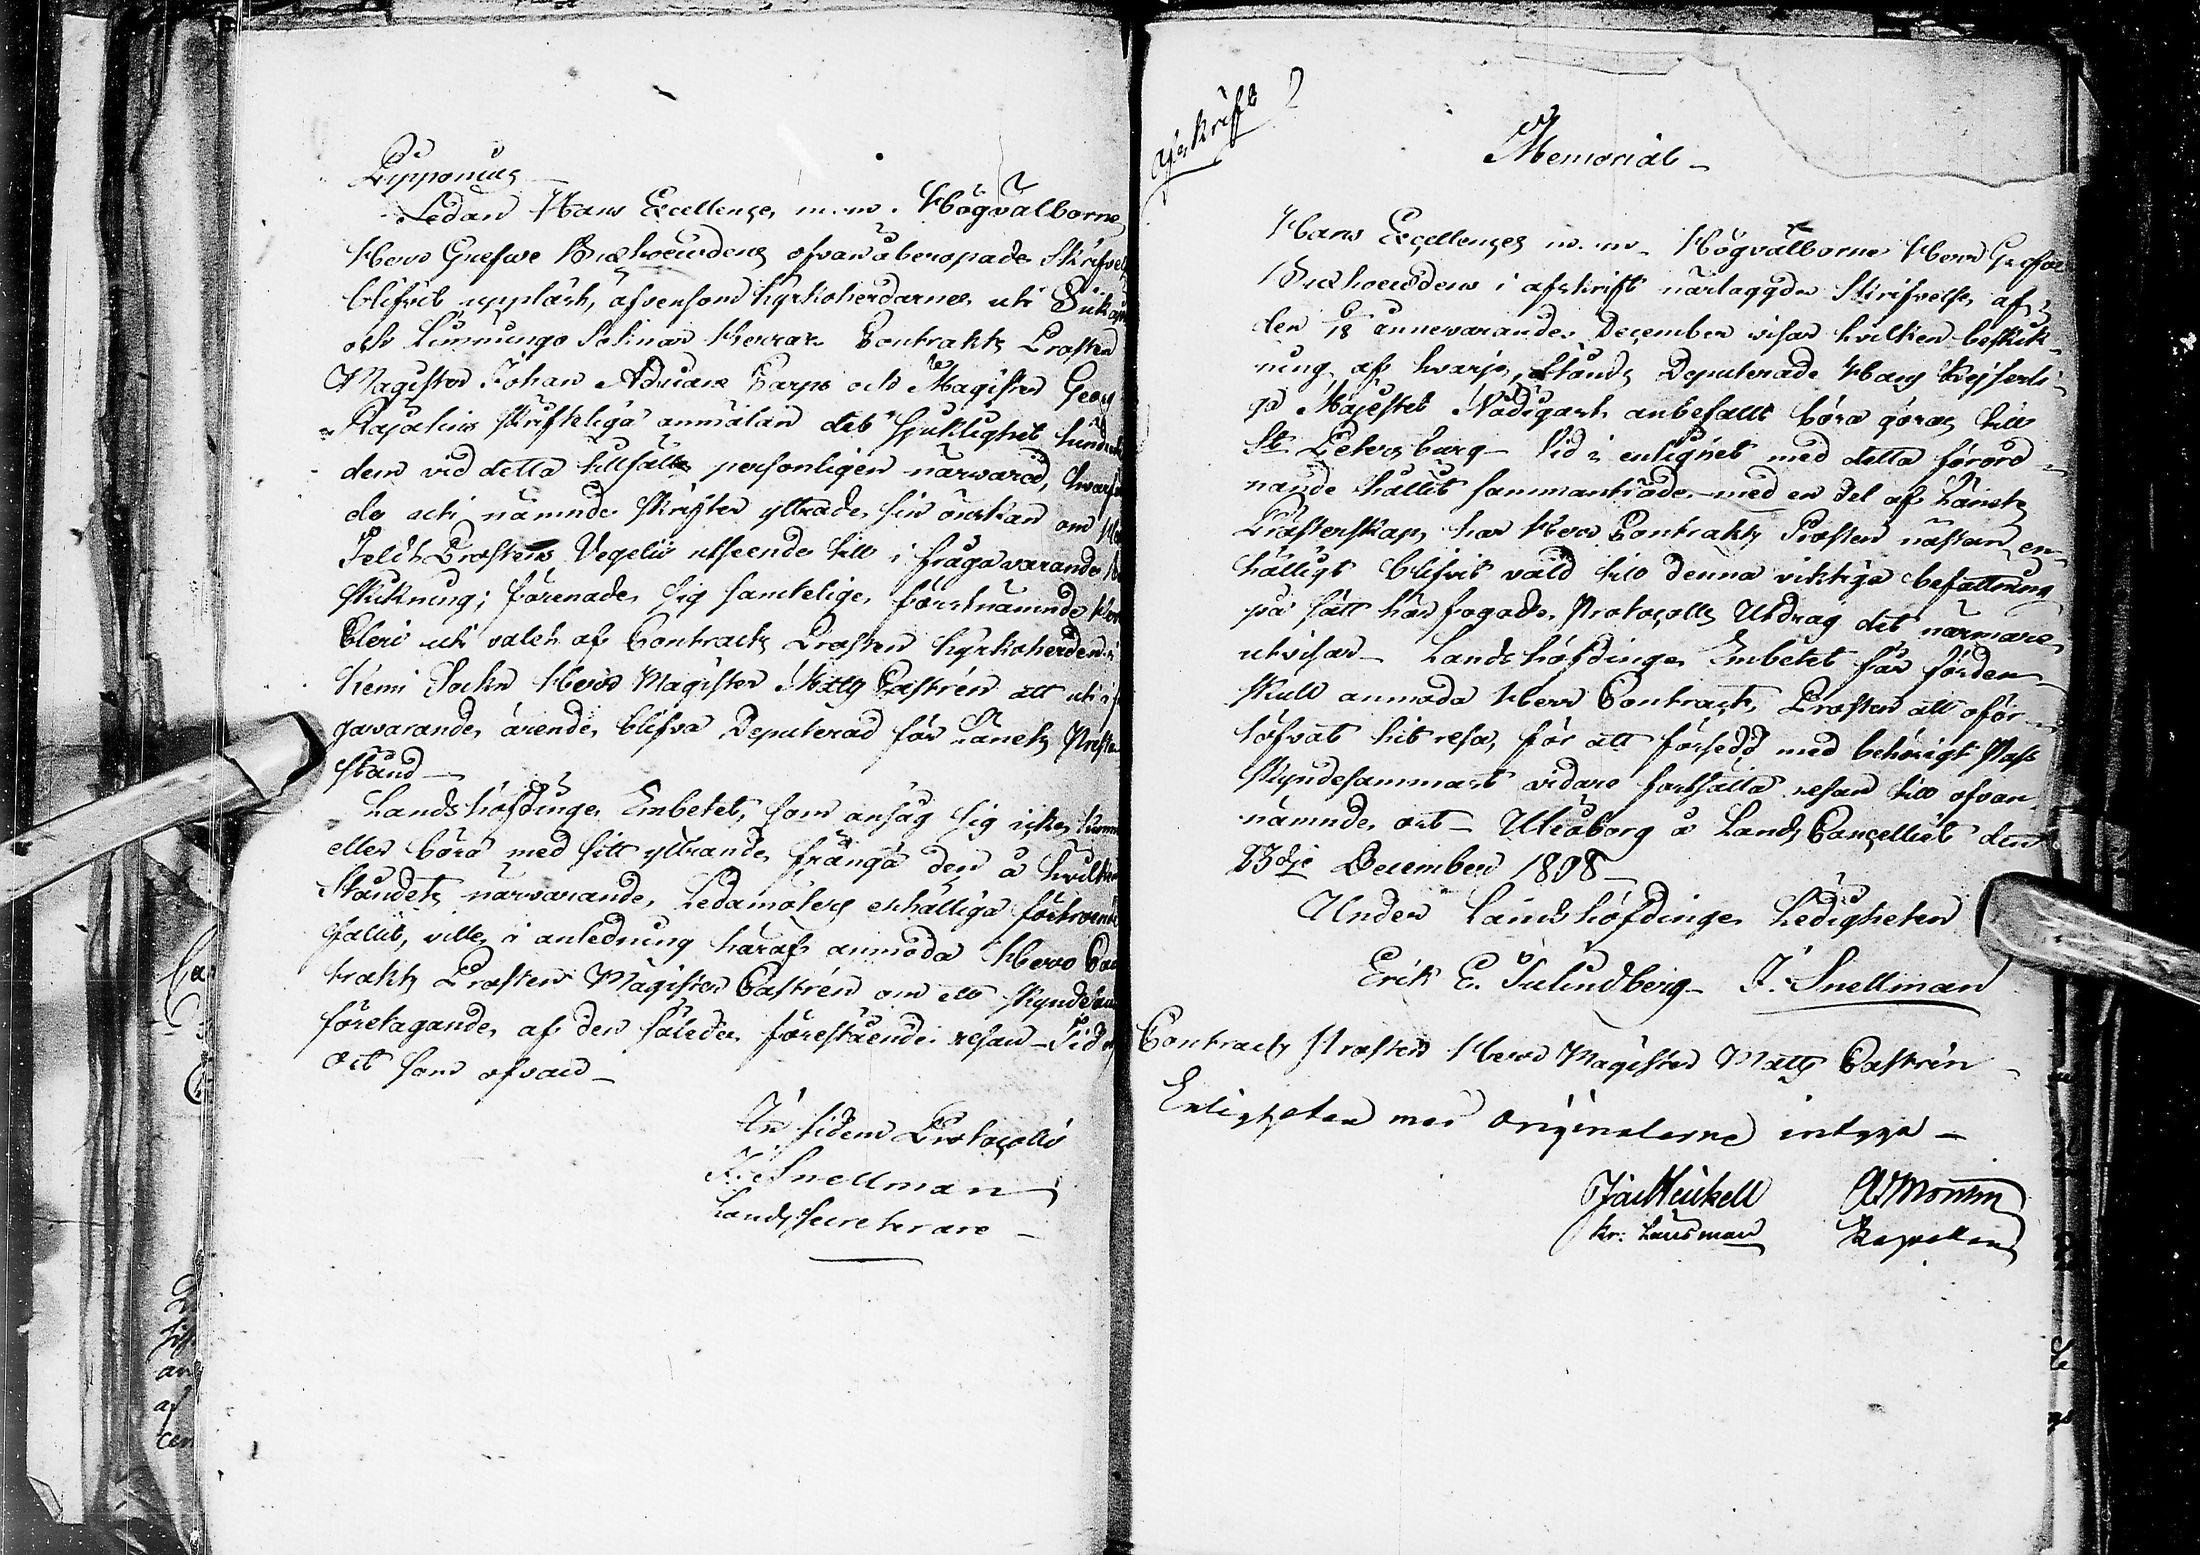 Lipponius
Sedan Hans Excellence, m. m. Högvälborne
Herr Grefwe Buxhoewdens ofvanåberopade Skrifvel
blifvit uppläst, äfvensom Kyrkoherdarnes uti
och Limmingo Soknar Herrar Contrakts Prosten
Magister Johan Adrian Carps och Magister Geor
Rajalins skriftliga anmälan det Sjuklighet hindrat
dem vid detta tillfälle personligen närvara,
de uti nämnde skrifter yttrade sin önskan om
Feldt Prostens Vegelii utseende till i frågavarande
skickning; förenade sig samtelige, förstnämnde
Cleri uti valet af Contracts Prosten Kyrkoherden i
Kemi Sockn Herr Magister Matts Castrén att uti
gavarande ärende blifva Deputerad för Länets
stånd —
Landshöfdinge Embetet, som ansåg sig icke kunna
eller böra med sitt yttrande frångå den å hvilken
Ståndets närvarande Ledamöters enhälliga förtroende
fallit, ville i anledning häraf anmoda Herr Con
trakts Prosten Magister Castrén om ett skyndsam
företagande af den således förestående resan — Tid o
ort som ofvan —
In fidem Protocolli
J. Snellman
Lands Secreterare —
Afskrift
Memorial —
Hans Excellences m. m. Högvälborne Herr Grefve
Buxhoewdens i afskrift närlaggde Skrifvelse af
den 6/18 innevarande December visar hvilken beskick-
ning af hvarje Stånds Deputerade Hans Kejserli-
ga Majestet Nådigast anbefallt böra göras till
St Petersburg — Vid i enlighet med detta förord-
nande hållit sammanträde med en del af Länets
Prästerskap, har Herr Contrakts Prosten nästan en-
hälligt blifvit vald till denna viktiga befattning
på sätt härfogade Protocolls Utdrag det närmare
utvisar — Landshöfdinge Embetet får förden-
skull anmoda Herr Contracts Prosten att oför-
töfvat hit resa, för att försedd med behörigt Pass
skyndesammast vidare fortsätta resan till ofvan-
nämnde ort — Uleåborg å Lands Cancelliet den
23dje December 1808 —
Under Landshöfdinge Ledigheten
Erik E. Tulindberg — J. Snellman
Contracts Prosten Herr Magister Matts Castrén —
Enligheten med Originalerne intyga —
Kr: Länsman Kapellan